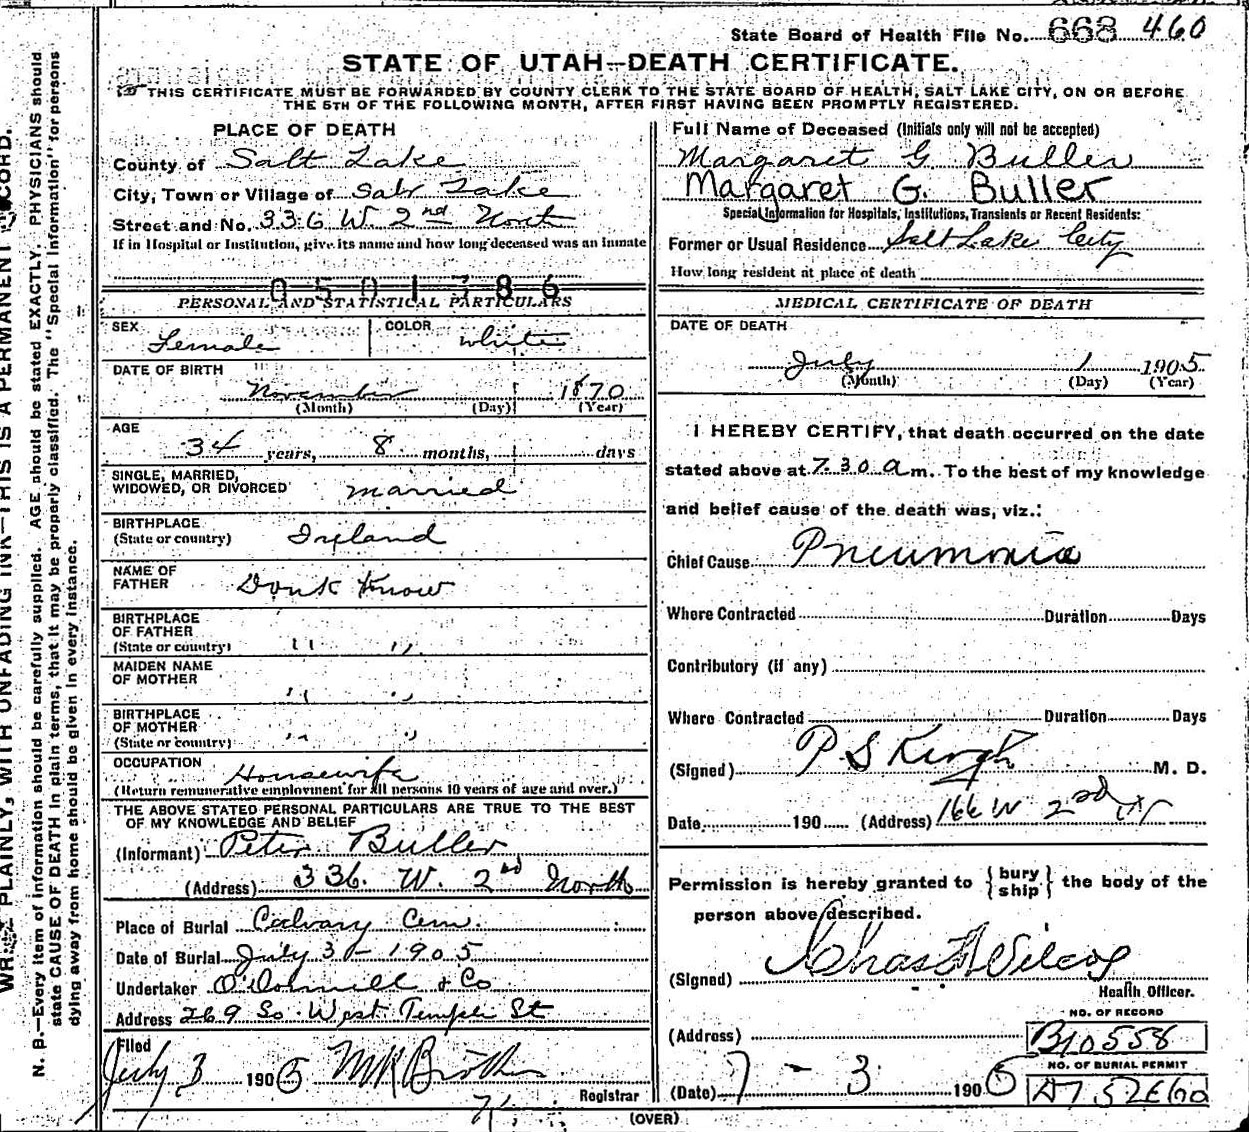 State Board of Health File No. 668 460
STATE OF UTAH—DEATH CERTIFICATE.
THIS CERTIFICATE MUST BE FORWARDED BY COUNTY CLERK TO THE STATE BOARD OF HEALTH, SALT LAKE CITY, ON OR BEFORE
THE 5TH OF THE FOLLOWING MONTH, AFTER FIRST HAVING BEEN PROMPTLY REGISTERED.
PLACE OF DEATH
County of Salt Lake
City, Town or Village of Salt Lake
Street and No. 336 W. 2nd North
If in Hospital or Institution, give its name and how long deceased was an inmate
0501786
PERSONAL AND STATISTICAL PARTICULARS
SEX Female COLOR white
DATE OF BIRTH
November 1870
(Month) (Day) (Year)
AGE
34 years, 8 months, days
SINGLE, MARRIED,
WIDOWED, OR DIVORCED married
BIRTHPLACE
(State or country) Ireland
NAME OF
FATHER Dont Know
BIRTHPLACE
OF FATHER
(State or country) " "
MAIDEN NAME
OF MOTHER " "
BIRTHPLACE
OF MOTHER
(State or country) " "
OCCUPATION Housewife
(Return remunerative employment for all persons 10 years of age and over.)
THE ABOVE STATED PERSONAL PARTICULARS ARE TRUE TO THE BEST
OF MY KNOWLEDGE AND BELIEF
(Informant) Peter Buller
(Address) 336. W. 2nd North
Place of Burial Calvary Cem.
Date of Burial July 3 - 1905
Undertaker O'Donnell & Co
Address 269 So. West Temple St
Filed
July 3 1905
Registrar
Full Name of Deceased (Initials only will not be accepted)
Margaret G Buller
Margaret G. Buller
Special Information for Hospitals, Institutions, Transients or Recent Residents:
Former or Usual Residence Salt Lake City
How long resident at place of death
MEDICAL CERTIFICATE OF DEATH
DATE OF DEATH
July 1 1905
(Month) (Day) (Year)
I HEREBY CERTIFY, that death occurred on the date
stated above at 7.30 a m. To the best of my knowledge
and belief cause of the death was, viz.:
Chief Cause Pneumonia
Where Contracted Duration Days
Contributory (if any)
Where Contracted Duration Days
(Signed) P S M. D.
Date 190 (Address) 166 W 2nd
Permission is hereby granted to { bury
ship } the body of the
person above described.
(Signed) Chas Wilcox
Health Officer.
NO. OF RECORD
(Address) B10558
NO. OF BURIAL PERMIT
(Date) 7 - 3 1905
(OVER)
WRITE PLAINLY, WITH UNFADING INK—THIS IS A PERMANENT RECORD.
N. B.—Every item of information should be carefully supplied. AGE should be stated EXACTLY. PHYSICIANS should
state CAUSE OF DEATH in plain terms, that it may be properly classified. The "Special Information" for persons
dying away from home should be given in every instance.